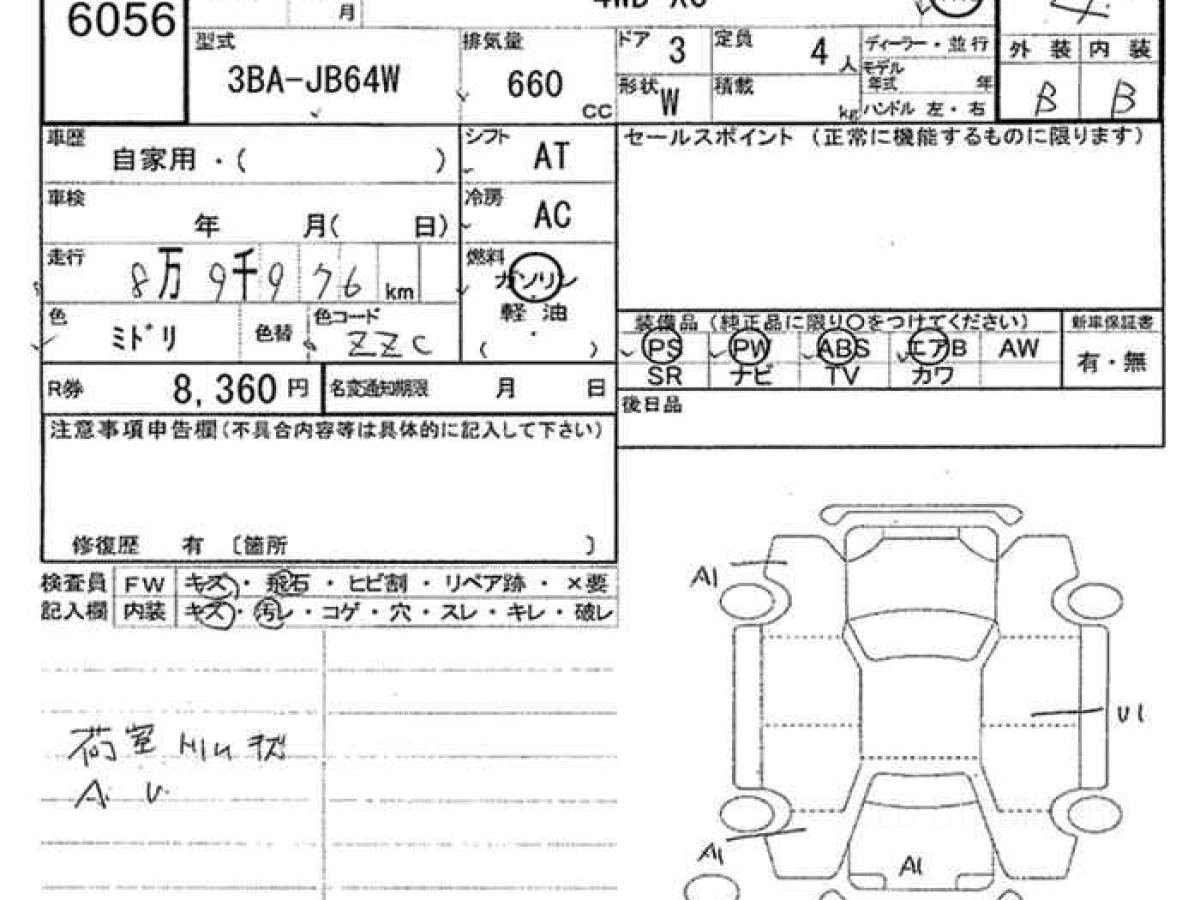 6056
月
4WD XC
型式
3BA-JB64W
排気量
660
CC
ドア 3
定員 4 人
ディーラー・並行
モデル
年式 年
形状 W
積載 kg
ハンドル 左・右
外装 内装
B B
車歴
自家用・( )
シフト
AT
セールスポイント (正常に機能するものに限ります)
車検
年 月( 日)
冷房
AC
走行
8万9千976 km
燃料
ガソリン
軽油
( ・ )
色
ミドリ
色替
色コード
ZZC
装備品 (純正品に限り〇をつけてください)
新車保証書
PS PW ABS エアB AW
有・無
SR ナビ TV カワ
R券 8,360 円
名変通知期限 月 日
後日品
注意事項申告欄(不具合内容等は具体的に記入して下さい)
修復歴 有 〔箇所 〕
検査員 FW キズ・飛石・ヒビ割・リペア跡・×要
記入欄 内装 キズ・汚レ・コゲ・穴・スレ・キレ・破レ
A1
U1
荷室 キズ
A U
A1
A1